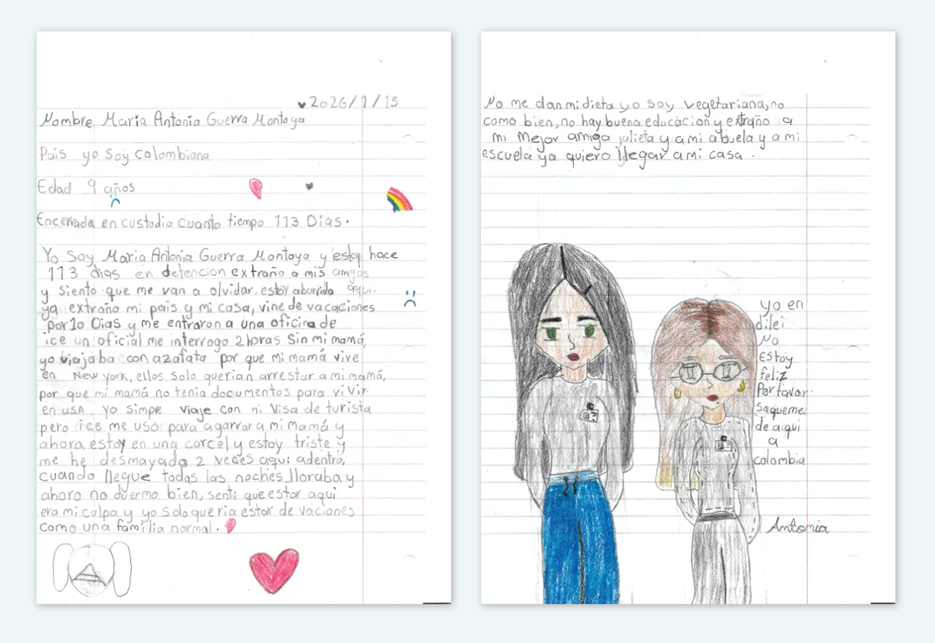 2026/1/15
Nombre Maria Antonia Guerra Montoya
Pais yo soy colombiana
Edad 9 años
Encerrada en custodio cuanto tiempo 113 Dias.
Yo Soy Maria Antonia Guerra Montoya y estoy hace
113 dias en detencion extraño a mis amigos
y siento que me van a olvidar, estoy aburrida aqui.
ya extraño mi pais y mi casa, vine de vacaciones
por 10 Dias y me entraron a una oficina de
ice un oficial me interrogo 2 horas Sin mi mamá,
yo viajaba con azafata por que mi mamá vive
en New York, ellos solo querian arrestar a mi mamá,
por que mi mamá no tenia documentos para vivir
en USA. Yo simpre viaje con mi Visa de turista
pero ice me usó para agarrar a mi mamá y
ahora estoy en una carcel y estoy triste y
me he desmayado 2 veces aqui adentro,
cuando llegue todas las noches lloraba y
ahora no duermo bien, senti que estar aqui
era mi culpa y yo solo queria estar de vaciones
como una familia normal.
No me dan mi dieta yo soy vegetariana, no
como bien, no hay buena educacion y extraño a
mi mejor amiga julieta y a mi abuela y a mi
escuela ya quiero llegar a mi casa.
yo en
dilei
No
Estoy
feliz
Por favor
saqueme
de aqui
a
colombia
Antonia